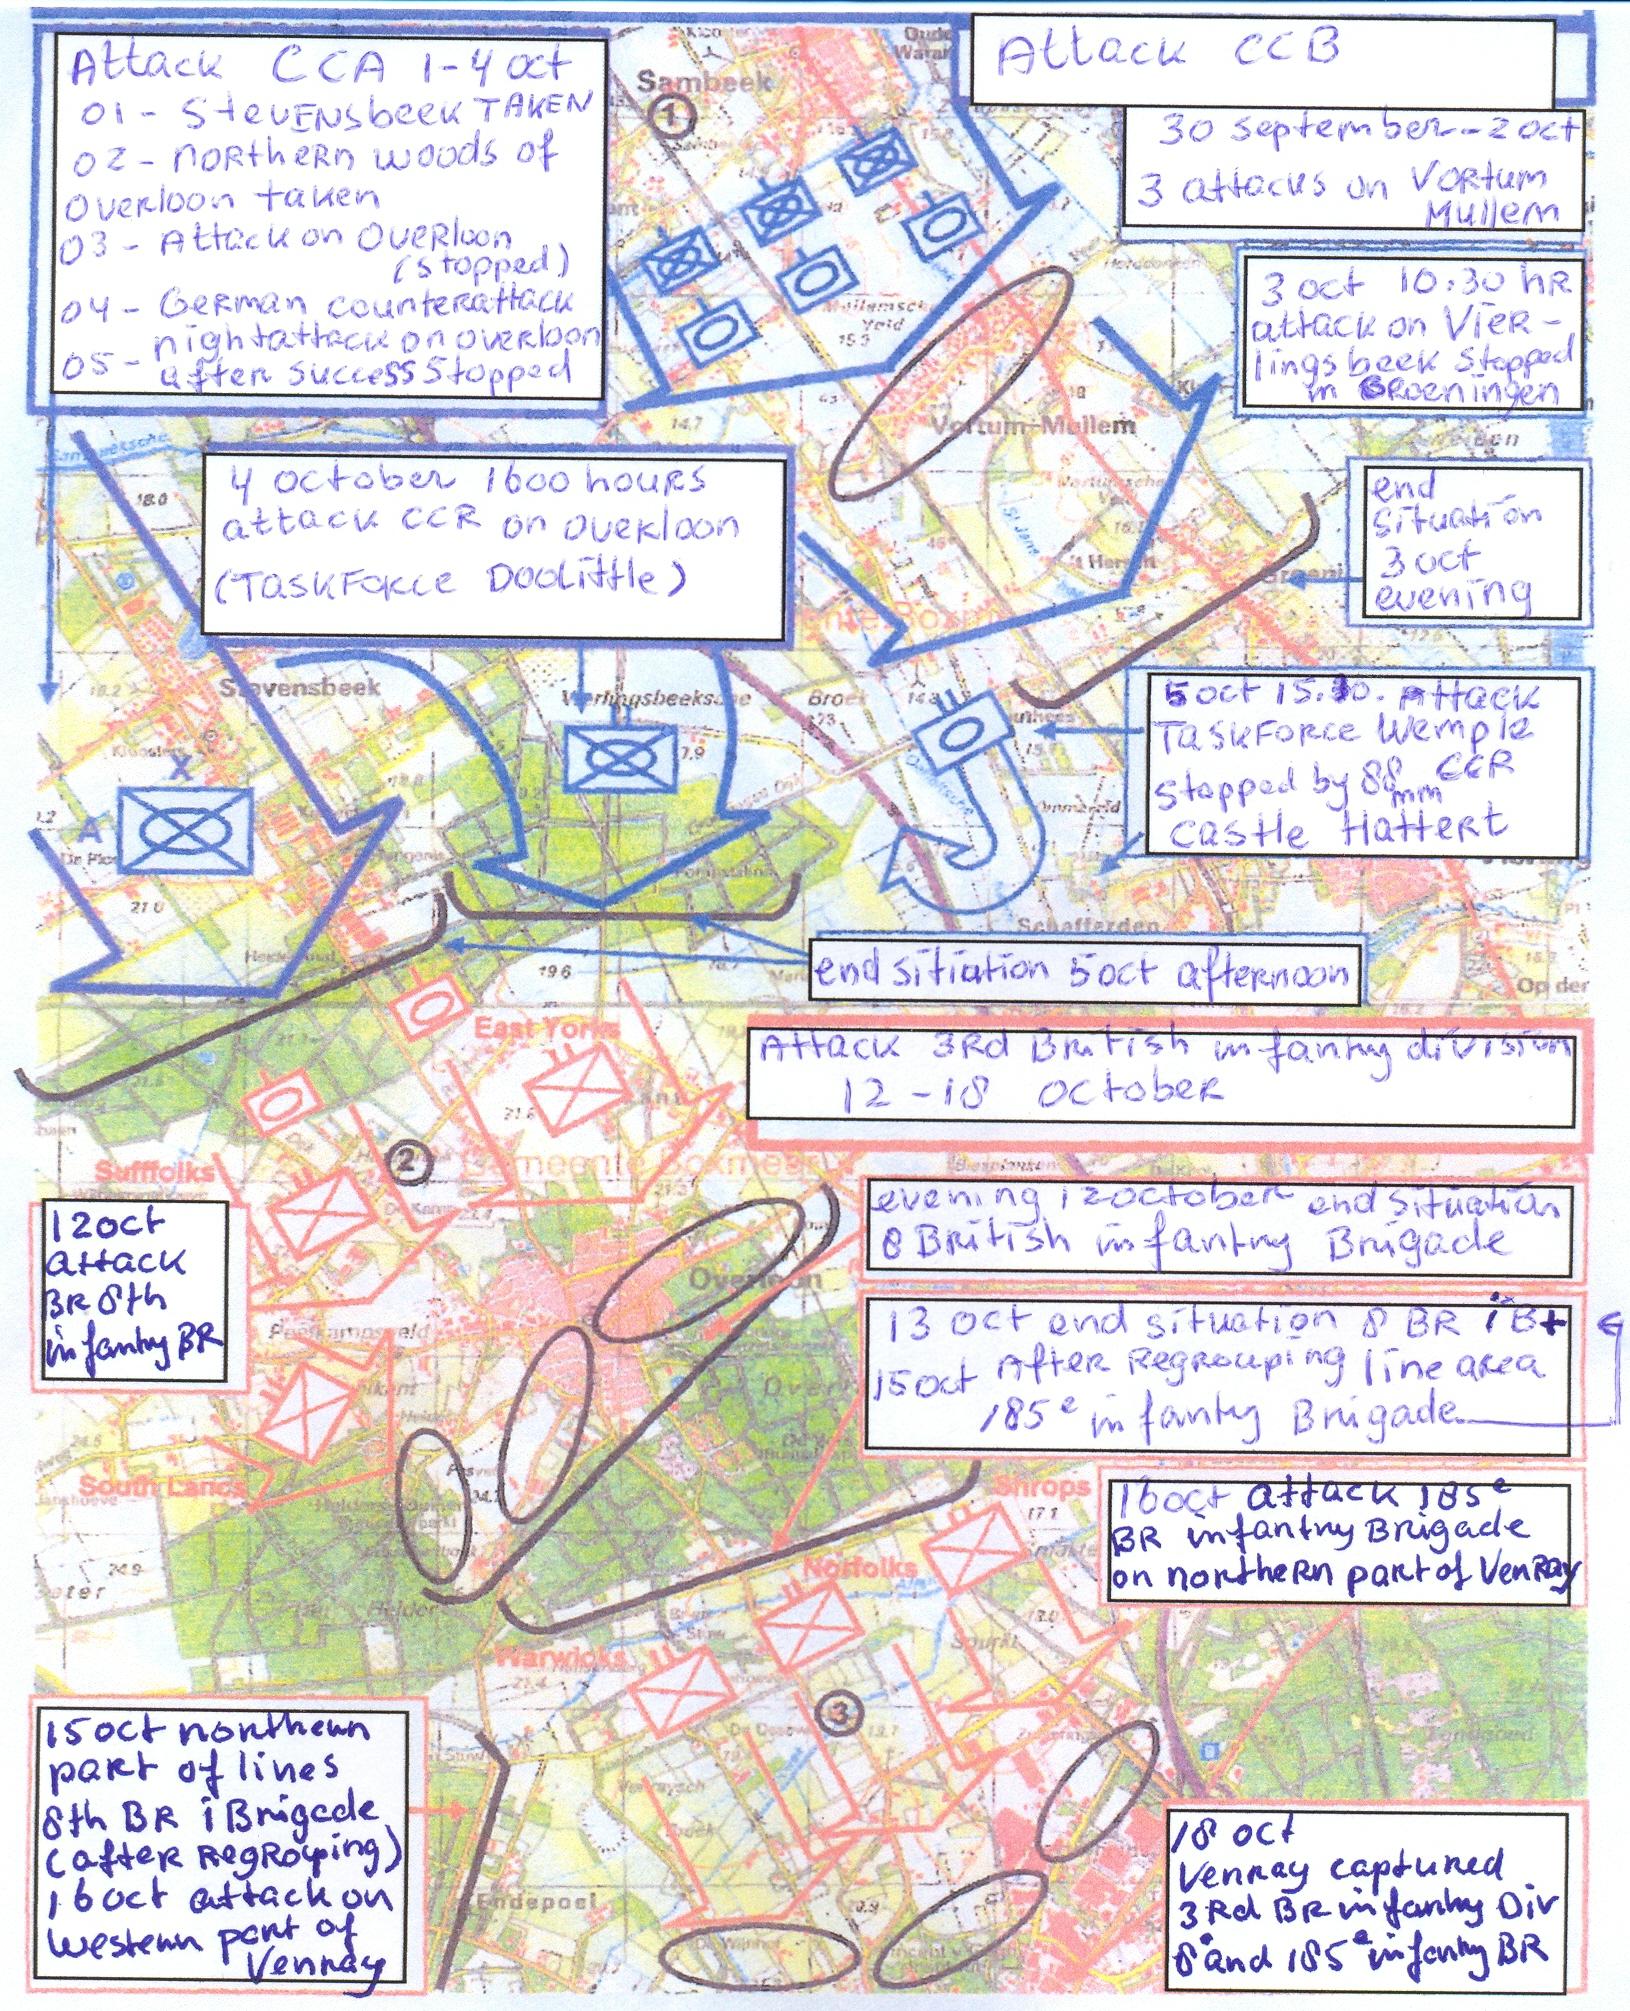 Attack CCA 1-4 oct
01 - StevENSbeek TAKEN
02 - NORTheRN woods of
OveRLoon taken
03 - Attack on OveRLoon
(stopped)
04 - GeRman counterattack
nightattack on overloon
05 - after success stopped
Attack CCB
30 september - 2 oct
3 attacks on VORTum
Mullem
3 oct 10:30 hR
attack on VieR -
lingsbeek stopped
in GRoeningen
end
situation
3 oct
evening
4 october 1600 hours
attack CCR on oveRLoon
(TaskForce Doolittle)
5 oct 15.30. Attack
TaskForce Wemple
stopped by 88 mm CCR
castle Hattert
end sitiation 5 oct afternoon
Attack 3Rd British infantry division
12 - 18 october
evening 12 october end situation
8 British infantry Brigade
12 oct
attack
BR 8th
infantry BR
13 oct end situation 8 BR iB+
15 oct After Regrouping line area
185e infantry Brigade
16 oct attack 185e
BR infantry Brigade
on northeRn part of VenRay
15 oct northern
part of lines
8th BR i Brigade
(after RegRouping)
16 oct attack on
western part of
Venray
18 oct
Venray captured
3Rd BR infantry Div
8e and 185e infantry BR
Sambeek
1
15.5
Vortum-Mullem
14.7
18.0
Stevensbeek
Vierlingsbeeksche
Broek
X
A
21.0
Schafferden
19.6
Op der
East Yorks
21.6
2
Gemeente Boxmeer
Sufffolks
Overloon
South Lancs
24.9
Shrops
17.1
Norfolks
Warwicks
Spurkt
3
Endepoel